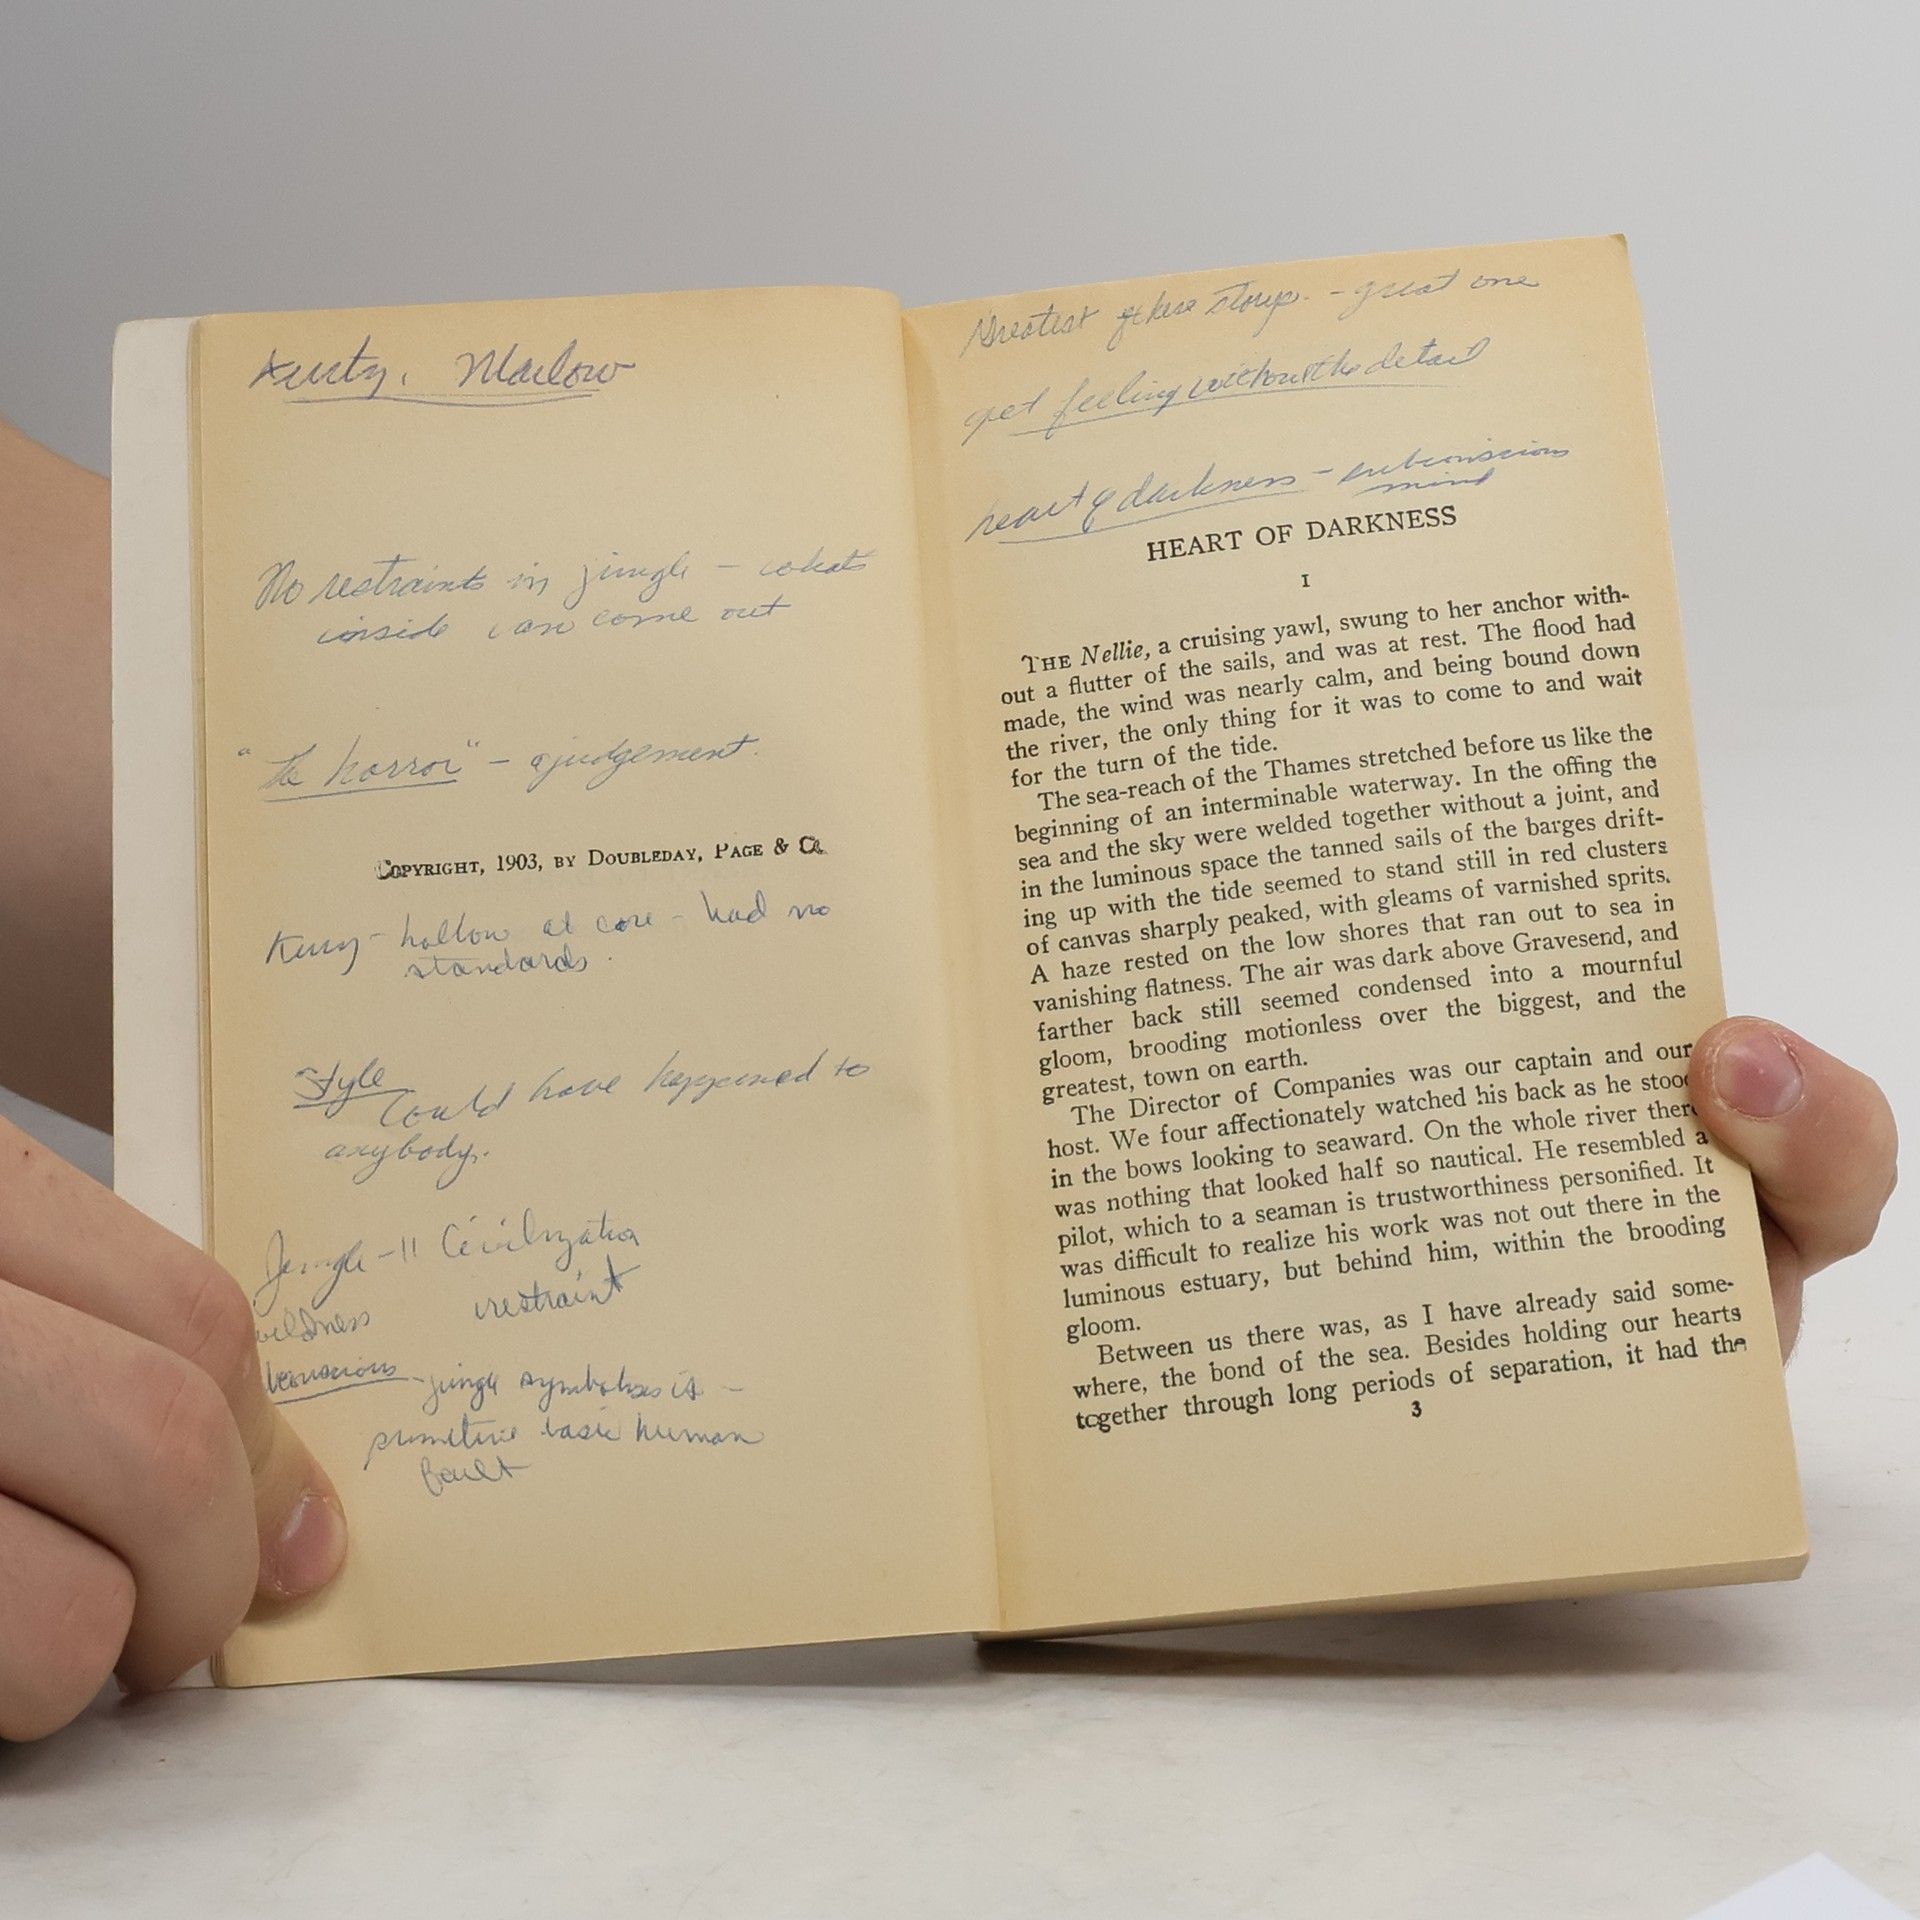 Kurtz, Marlow
No restraints in jungle – whats
inside can come out
"the horror" – a judgement.
COPYRIGHT, 1903, BY DOUBLEDAY, PAGE & CO.
Kurtz – hollow at core – had no
standards.
Style
Could have happened to
anybody.
Jungle – || Civilization
wildness restraint
jungle symbolizes it –
primitive basic human
fault
Greatest of these storys. – great one
get feeling without the detail
heart of darkness – subconscious
mind
HEART OF DARKNESS
I
THE Nellie, a cruising yawl, swung to her anchor with-
out a flutter of the sails, and was at rest. The flood had
made, the wind was nearly calm, and being bound down
the river, the only thing for it was to come to and wait
for the turn of the tide.
The sea-reach of the Thames stretched before us like the
beginning of an interminable waterway. In the offing the
sea and the sky were welded together without a joint, and
in the luminous space the tanned sails of the barges drift-
ing up with the tide seemed to stand still in red clusters
of canvas sharply peaked, with gleams of varnished sprits.
A haze rested on the low shores that ran out to sea in
vanishing flatness. The air was dark above Gravesend, and
farther back still seemed condensed into a mournful
gloom, brooding motionless over the biggest, and the
greatest, town on earth.
The Director of Companies was our captain and our
host. We four affectionately watched his back as he stood
in the bows looking to seaward. On the whole river there
was nothing that looked half so nautical. He resembled a
pilot, which to a seaman is trustworthiness personified. It
was difficult to realize his work was not out there in the
luminous estuary, but behind him, within the brooding
gloom.
Between us there was, as I have already said some-
where, the bond of the sea. Besides holding our hearts
together through long periods of separation, it had the
3